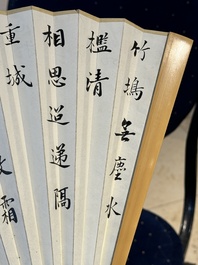 竹塢無塵水
檻清
相思迢遞隔
重城
霜